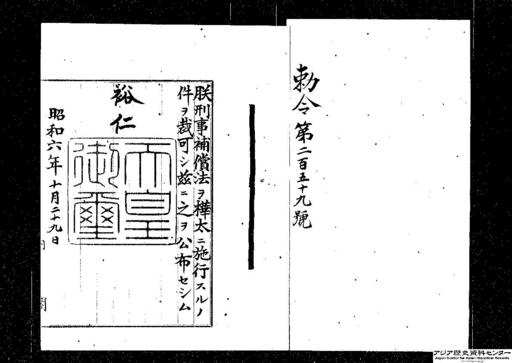 勅令第二百五十九號
朕刑事補償法ヲ樺太ニ施行スルノ
件ヲ裁可シ茲ニ之ヲ公布セシム
裕仁
天皇御璽
昭和六年十月二十九日
内閣
アジア歴史資料センター
Japan Center for Asian Historical Records